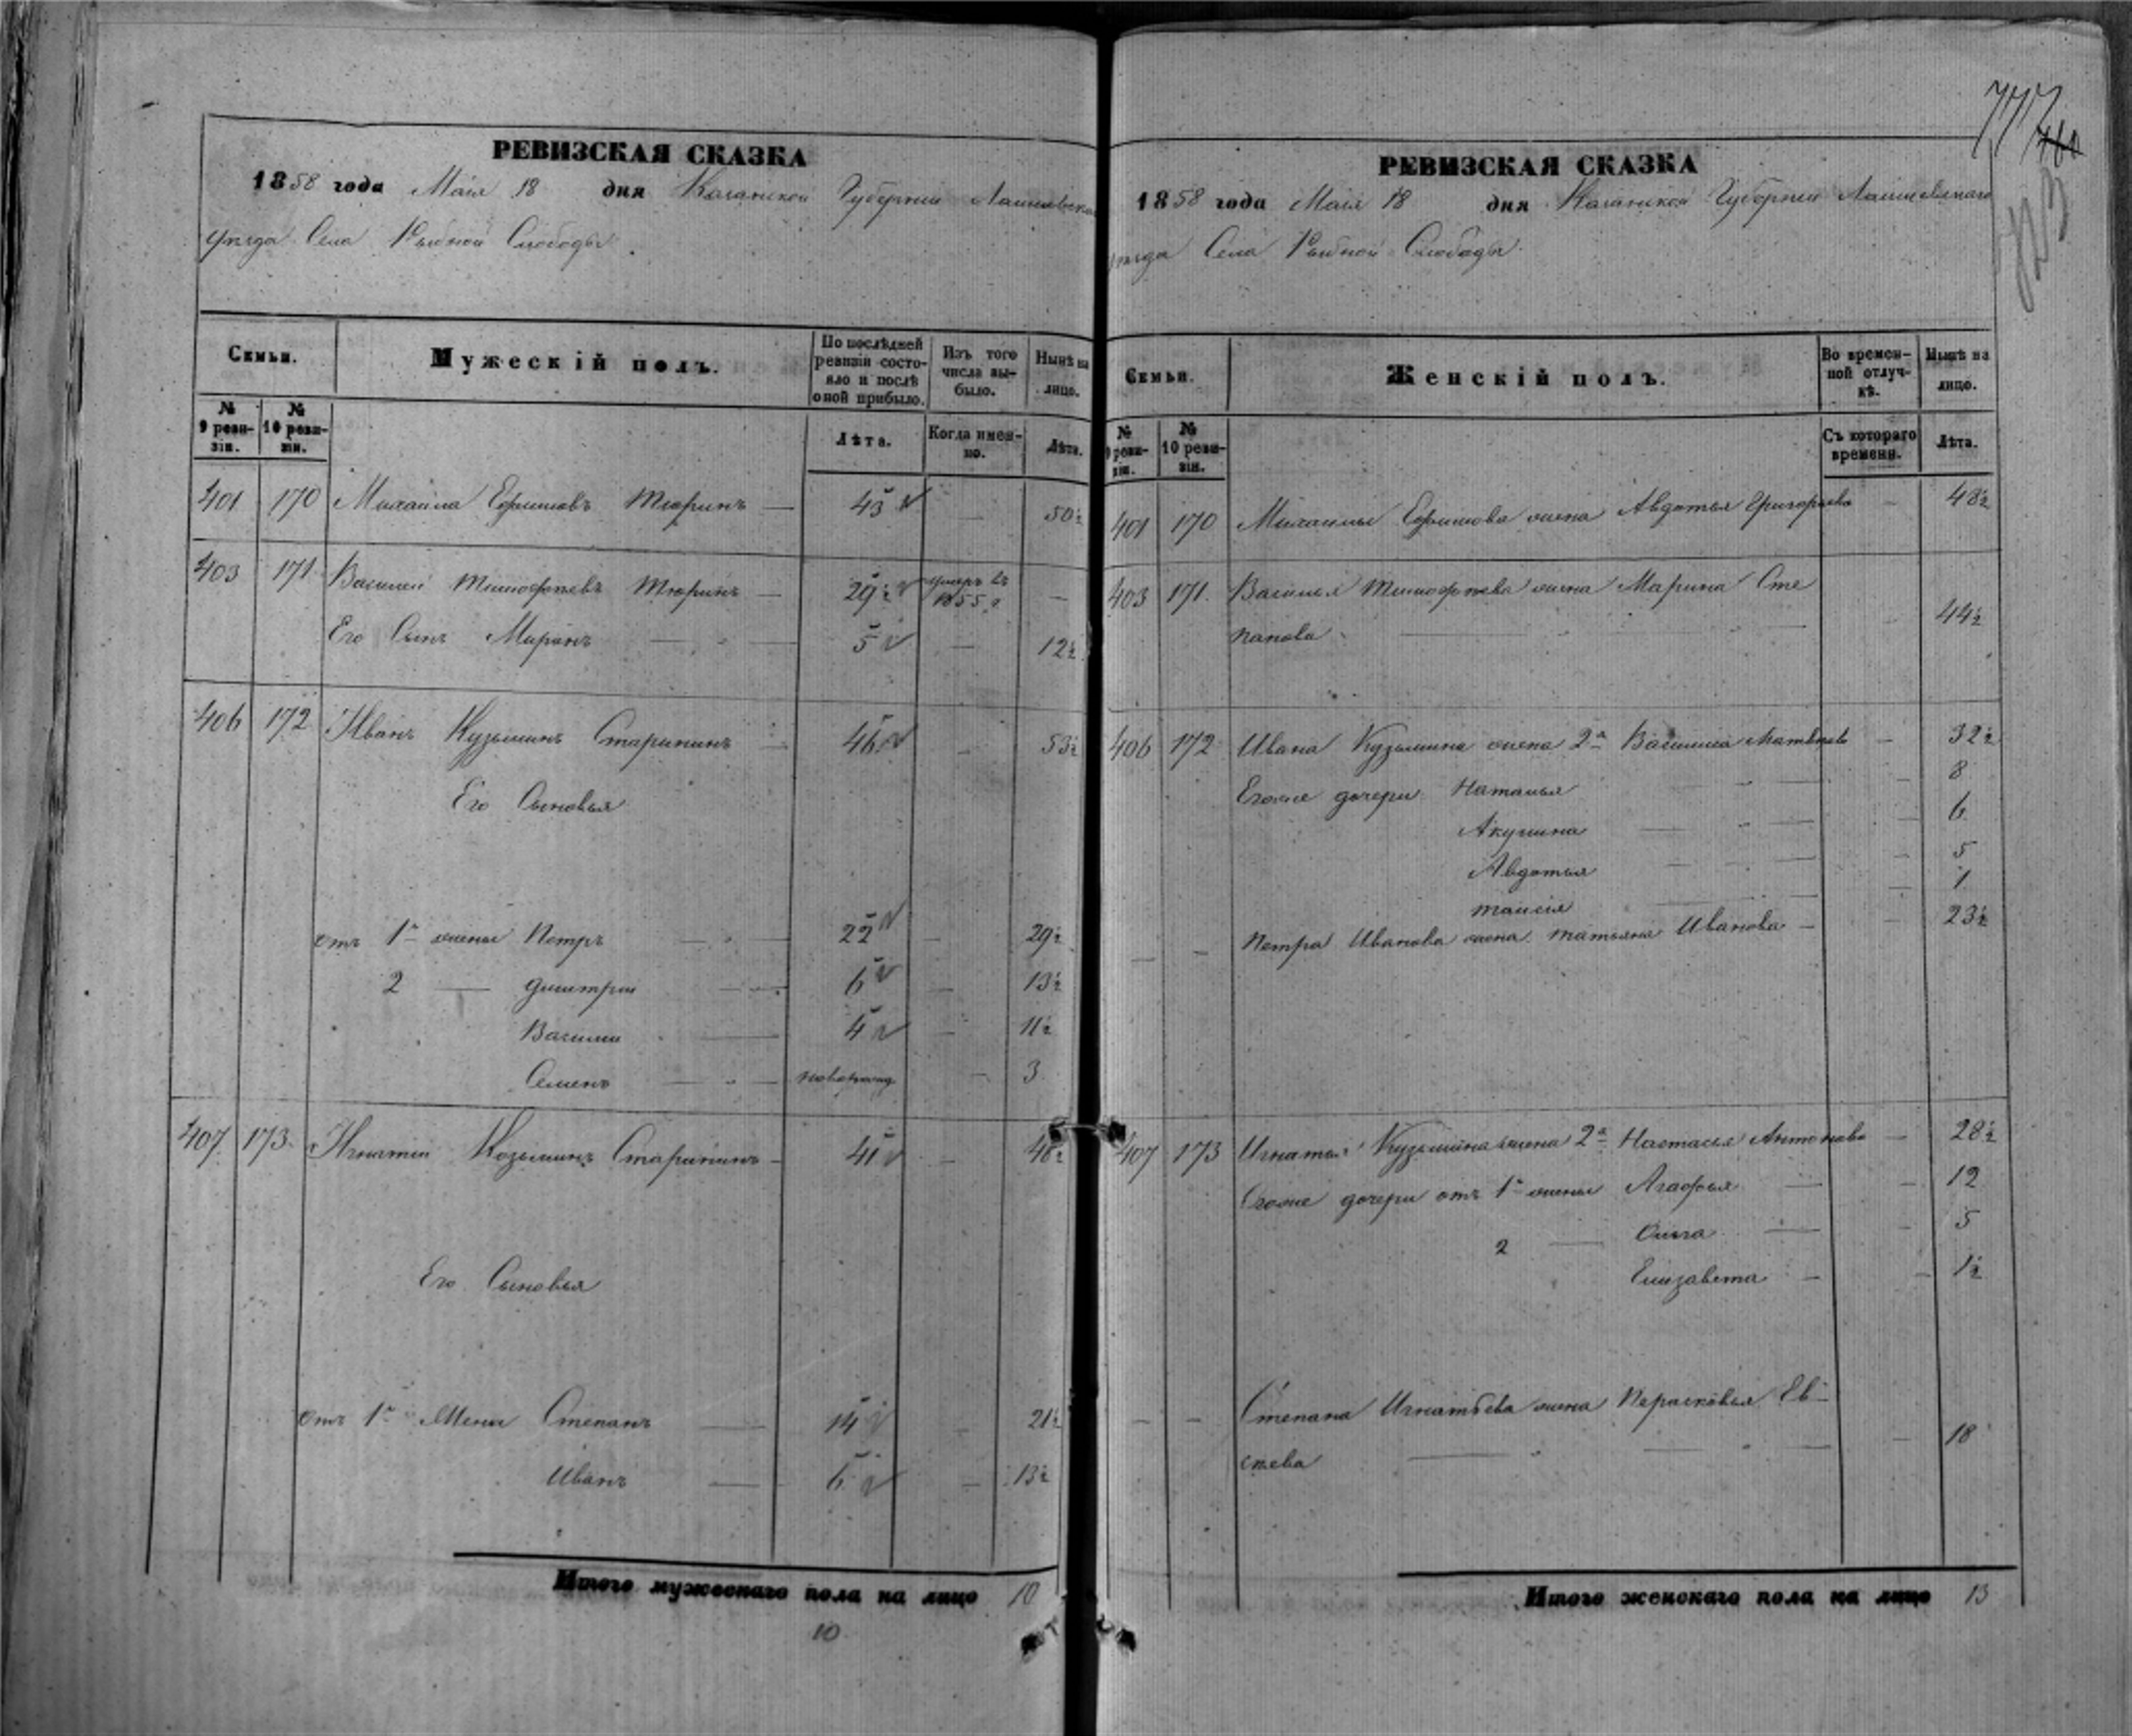 РЕВИЗСКАЯ СКАЗКА
1858 года Маія 18 дня Казанской Губерніи Лаишевскаго
уѣзда Села Рыбной Слободы
Семьи.
Мужескій полъ.
По послѣдней ревизіи состояло и послѣ оной прибыло.
Изъ того числа выбыло.
Нынѣ на лицо.
№ 9 ревизіи.
№ 10 ревизіи.
Лѣта.
Когда именно.
Лѣта.
401 170 Михаила Ефимовъ Тюринъ — 43 — 50½
403 171 Василей Тимофѣевъ Тюринъ — 29½ умеръ въ 1855 г —
Его Сынъ Миронъ — 5 — 12½
406 172 Иванъ Кузьминъ Старининъ 46 — 53½
Его Сыновья
отъ 1й жены Петръ — 22 — 29½
2 — Димитрии — 6 — 13½
Василии — 4 — 11½
Семенъ — новорожд — 3
407 173 Игнатіи Козьминъ Старининъ — 41 — 48½
Его Сыновья
отъ 1й Жены Степанъ — 14 — 21½
Иванъ — 6 — 13½
Итого мужескаго пола на лицо 10
10
777
460
РЕВИЗСКАЯ СКАЗКА
1858 года Маія 18 дня Казанской Губерніи Лаишевскаго
уѣзда Села Рыбной Слободы
Семьи.
Женскій полъ.
Во временной отлучкѣ.
Нынѣ на лицо.
№ 9 ревизіи.
№ 10 ревизіи.
Съ котораго времени.
Лѣта.
401 170 Михаилы Ефимова жена Авдотья Григорьева — 48½
403 171 Василья Тимофѣева жена Марина Сте
панова — 44½
406 172 Ивана Кузьмина жена 2а Василиса Матвѣева — 32½
Егоже дочери Наталья — 8
Акулина — 6
Авдотья — 5
Таисія — 1
— — Петра Иванова жена Татьяна Иванова — 23½
407 173 Игнатья Кузьмина жена 2а Настасья Антонова — 28½
Егоже дочери отъ 1й жены Агафья — 12
2 — Ольга — 5
Елизавета — 1½
— — Степана Игнатьева жена Парасковья Ев-
сѣева — 18
Итого женскаго пола на лицо 13